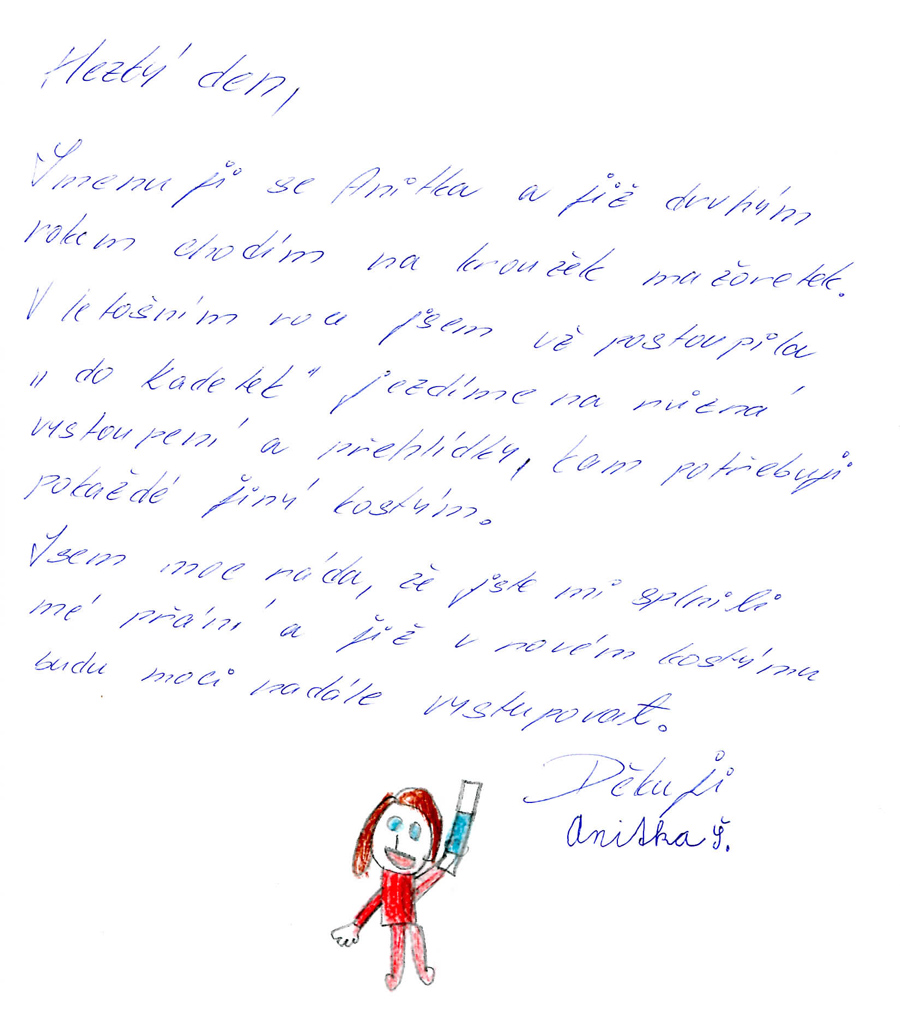 Hezký den,
Jmenuji se Anitka a již druhým
rokem chodím na kroužek mažoretek.
V letošním roce jsem už postoupila
„do kadetek" jezdíme na různá
vystoupení a přehlídky, kam potřebuji
pokaždé jiný kostým.
Jsem moc ráda, že jste mi splnili
mé přání a již v novém kostýmu
budu moci nadále vystupovat.
Děkuji
Anitka Š.